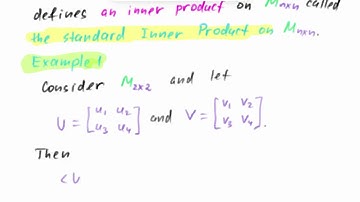 defines an inner product on Mnxn called
the standard Inner Product on Mnxn.
Example 1
Consider M2x2 and let
U = [u1 u2 u3 u4] and V = [v1 v2 v3 v4].
Then
<U